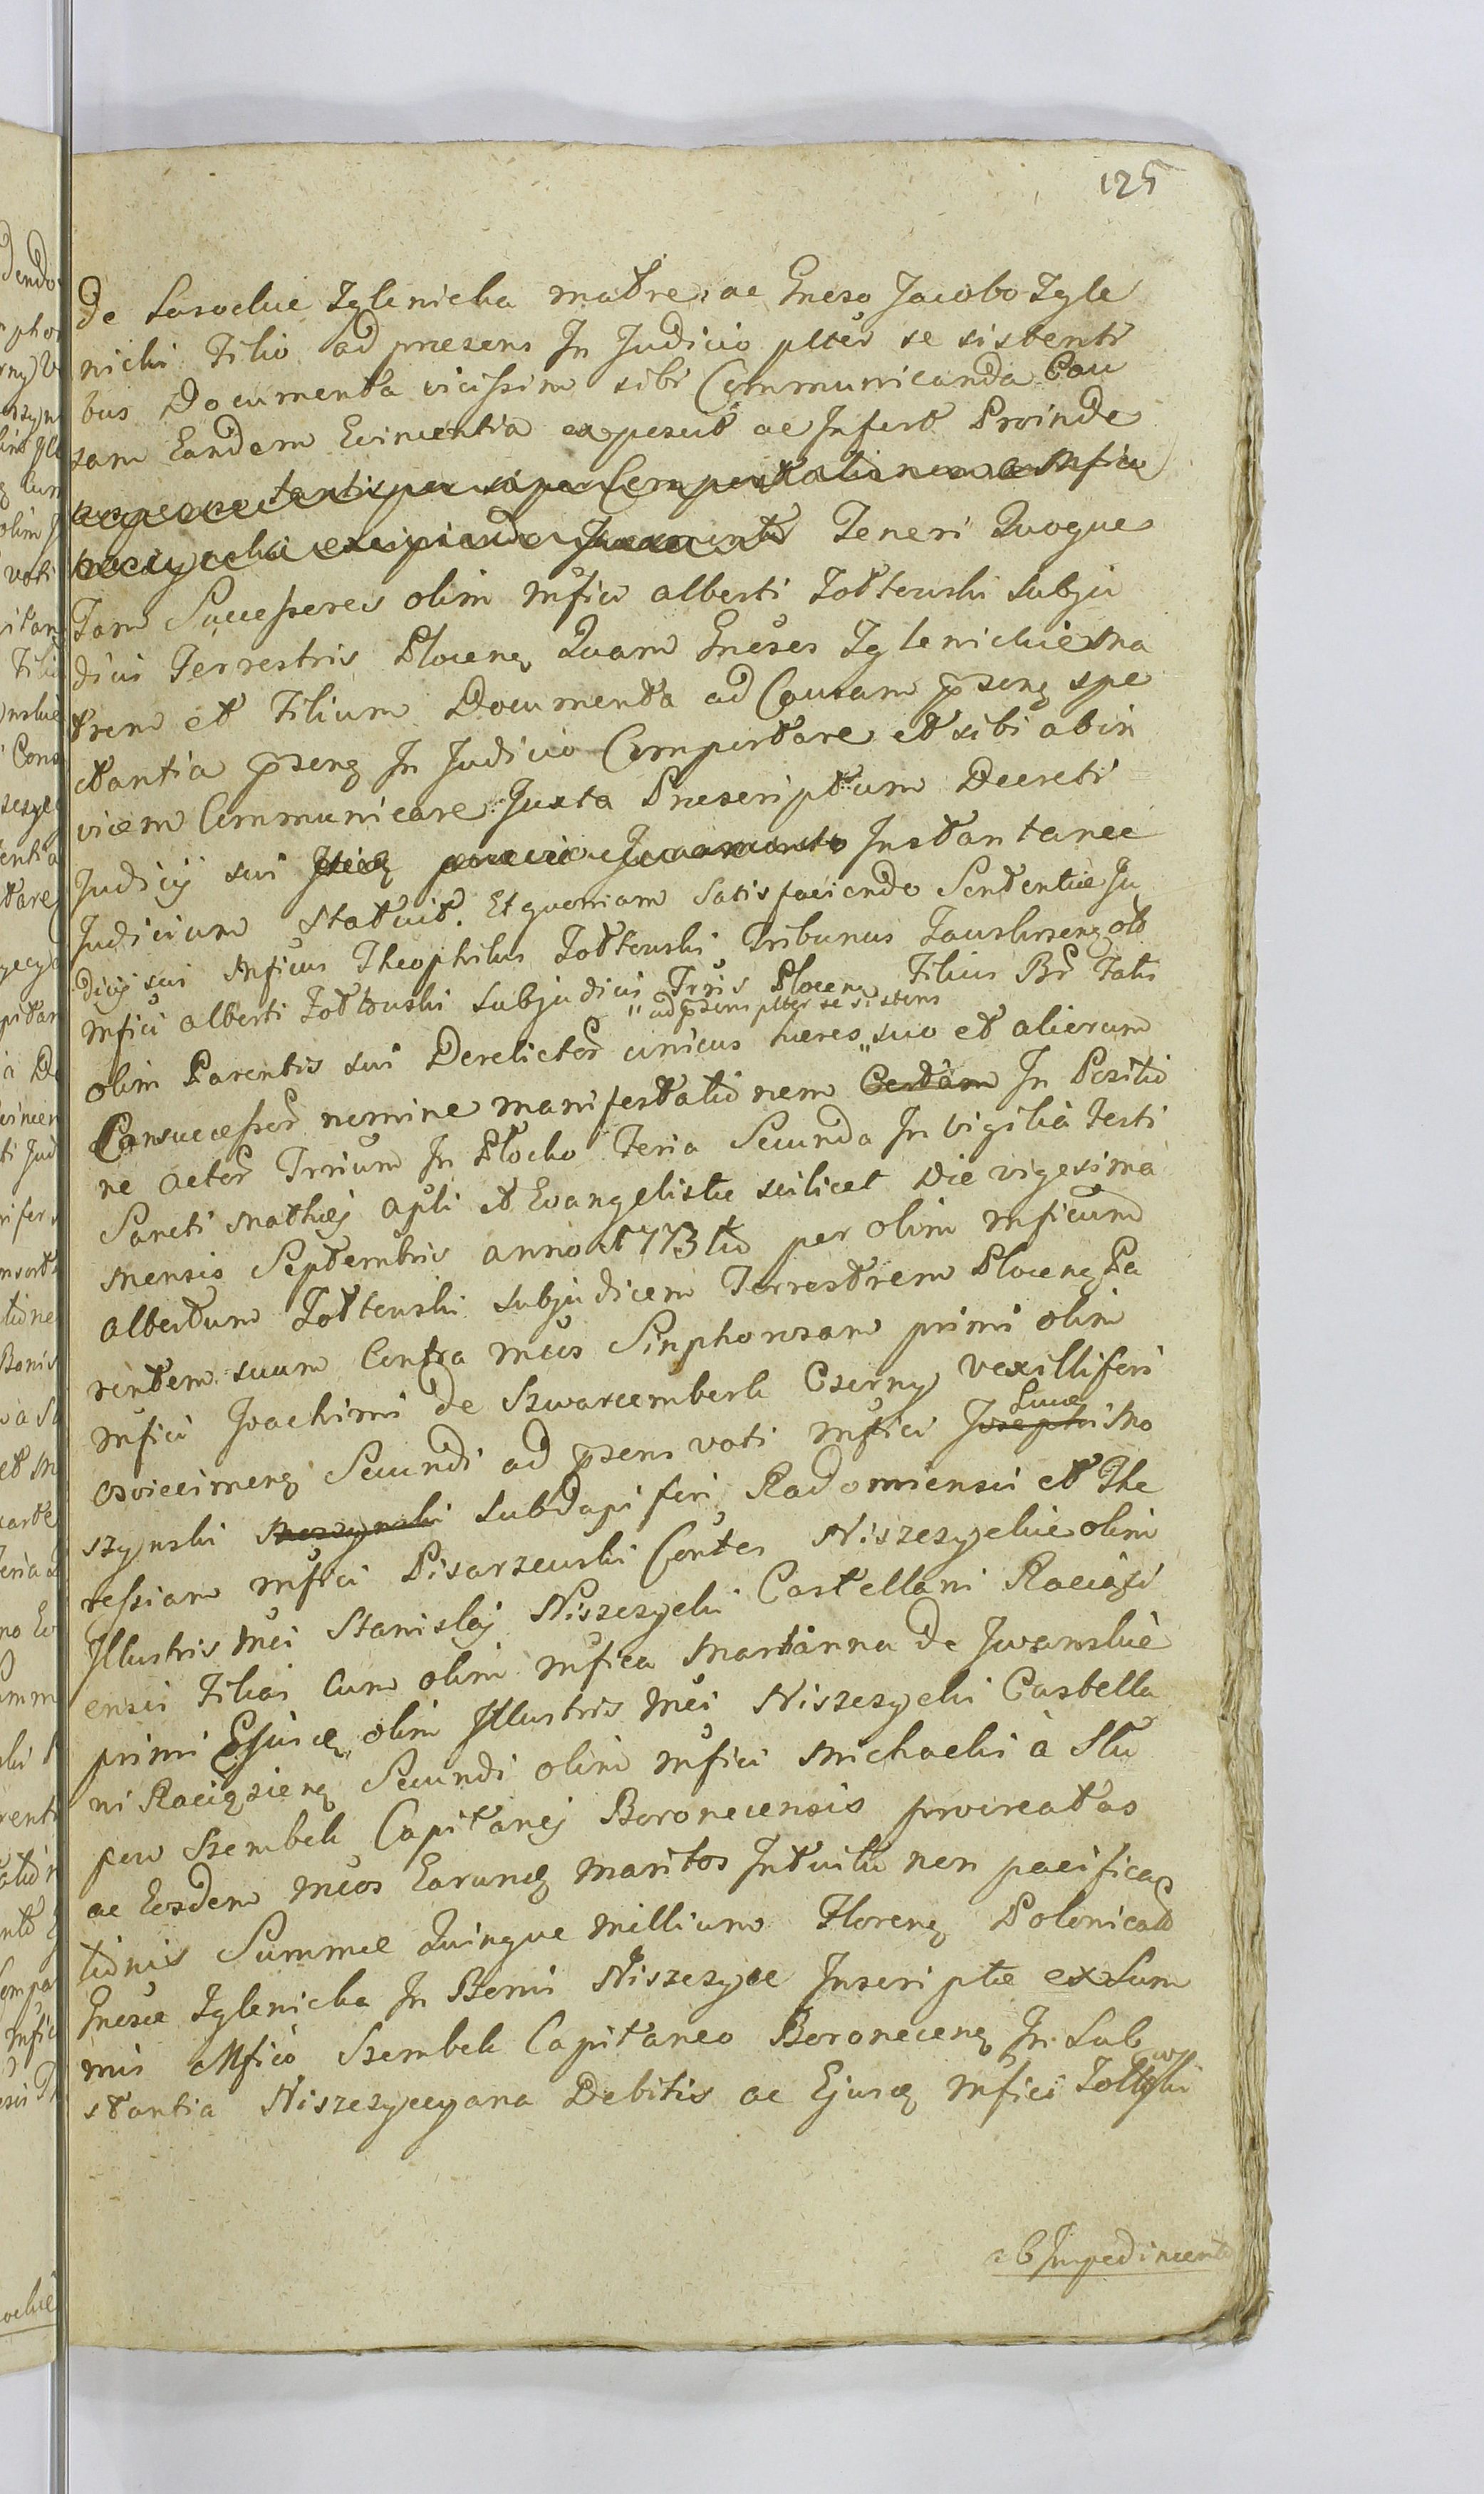 125
De Lasockie Zglenicka matre, ac Gneso Jacobo Zgle
nicki Filio ad praesens In Judicio plter se sistenti
bus Documenta vicissim sibi Communicanda Cau
sam Eandem Evincentia exposcit ac Infert Proinde
tantisper super Comportatione a Mfico
excipiendo Juramento Teneri Quoque
Tam Successores olim Mfici Alberti Zołtowski Subju
dicis Terrestris Plocenꝫ Quam Gnesos Zglenickie Ma
trem et Filium Documenta ad Causam psenꝫ spe
ctantia psenꝫ In Judicio Comportare et sibi abin
vicem Communicare Juxta Praescriptum Decreti
Judicij sui praevio Juramento Instantanee
Judicium Statuit. Et quoniam Satisfaciendo Sententiae Ju
dicij sui Mficus Theophilus Zołtowski Tribunus Zauskrzenꝫ olim
Mfici Alberti Zołtowski Subjudicis Trris Plocenꝫ Filius Br Talis
" ad psens plter se sistens
olim Parentis sui Derelictor unicus haeres " suo et aliorum
Consuccessor nomine manifestationem Certam In Positio
ne actor Trrium In Płocko Feria Secunda In vigilia Festi
Sancti Mathaei Apli et Evangelistae scilicet Die vigesima
Mensis Septembris anno 1773tio per olim Mficum
Albertum Zołtowski Subjudicem Terrestrem Plocenꝫ Pa
rentem suum Contra Mcas Sinphorosam primi olim
Mfici Joachimi de Szwarcemberk Czerny Vexilliferi
Lucae
Osviecimenꝫ Secundi ad psens voti Mfici Josephi Mo
szynski Moszynski Subdapiferi Radomiensis et The
ressiam Mfici Pisarzewski Contes Niszczyckie olim
Illustris Mci Stanislai Niszczycki Castellani Raciązi
ensis Filias Cum olim Mfica Marianna de Iwanskie
primi Ejusꝫ olim Illustris Mci Niszczycki Castella
ni Raciązienꝫ Secundi olim Mfici Michaelis à Słu
pow Szembek Capitanei Boronecensis procreatas
ac Eosdem Mcos Earunꝫ maritos Intuitu non pacifica
tionis Summae Quinque Millium Florenꝫ Polonicalium
Gnesae Zglenicka In Bonis Niszczyce Inscriptae ex Sum
mis Mfico Szembek Capitaneo Boronecenꝫ In Sub
stantia Niszczycyana Debitis ac Ejusꝫ Mfici Zołtowski
ab Impedimento